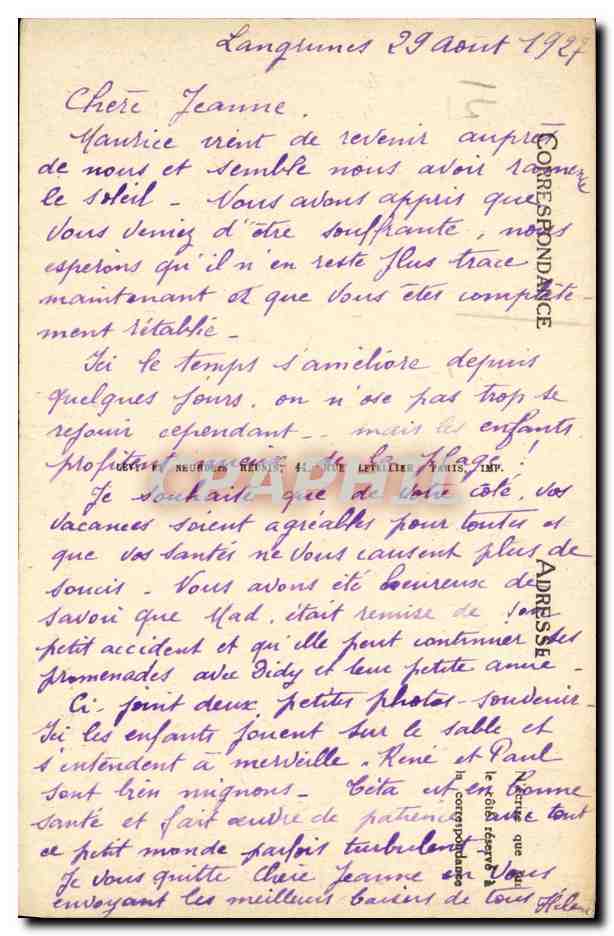 Langrunes 29 Aout 1927
Chère Jeanne.
Maurice vient de revenir auprès
de nous et semble nous avoir ramené
le soleil - Vous avons appris que
vous veniez d'être souffrante, nous
esperons qu'il n'en reste plus trace
maintenant et que vous êtes complète-
ment rétablie -
Ici le temps s'améliore depuis
quelques jours. on n'ose pas trop se
rejouir cependant - mais les enfants
profitent de la plage !
Je souhaite que de votre côté, vos
vacances soient agréables pour toutes et
que vos santés ne vous causent plus de
soucis - Vous avons été heureux de
savoir que Mad. était remise de son
petit accident et qu'elle peut continuer ses
promenades avec Didy et leur petite amie -
Ci-joint deux petites photos-souvenir -
Ici les enfants jouent sur le sable et
s'entendent à merveille. René et Paul
sont bien mignons - Têta est en bonne
santé et fait œuvre de patience avec tout
ce petit monde parfois turbulent
Je vous quitte chère Jeanne en vous
envoyant les meilleurs baisers de tous
Hélène
CORRESPONDANCE
ADRESSE
N'écrire que du
le côté réservé à
la correspondance
LEVY ET NEURDEIN REUNIS, 44, RUE LETELLIER, PARIS, IMP.
CPAPHIL